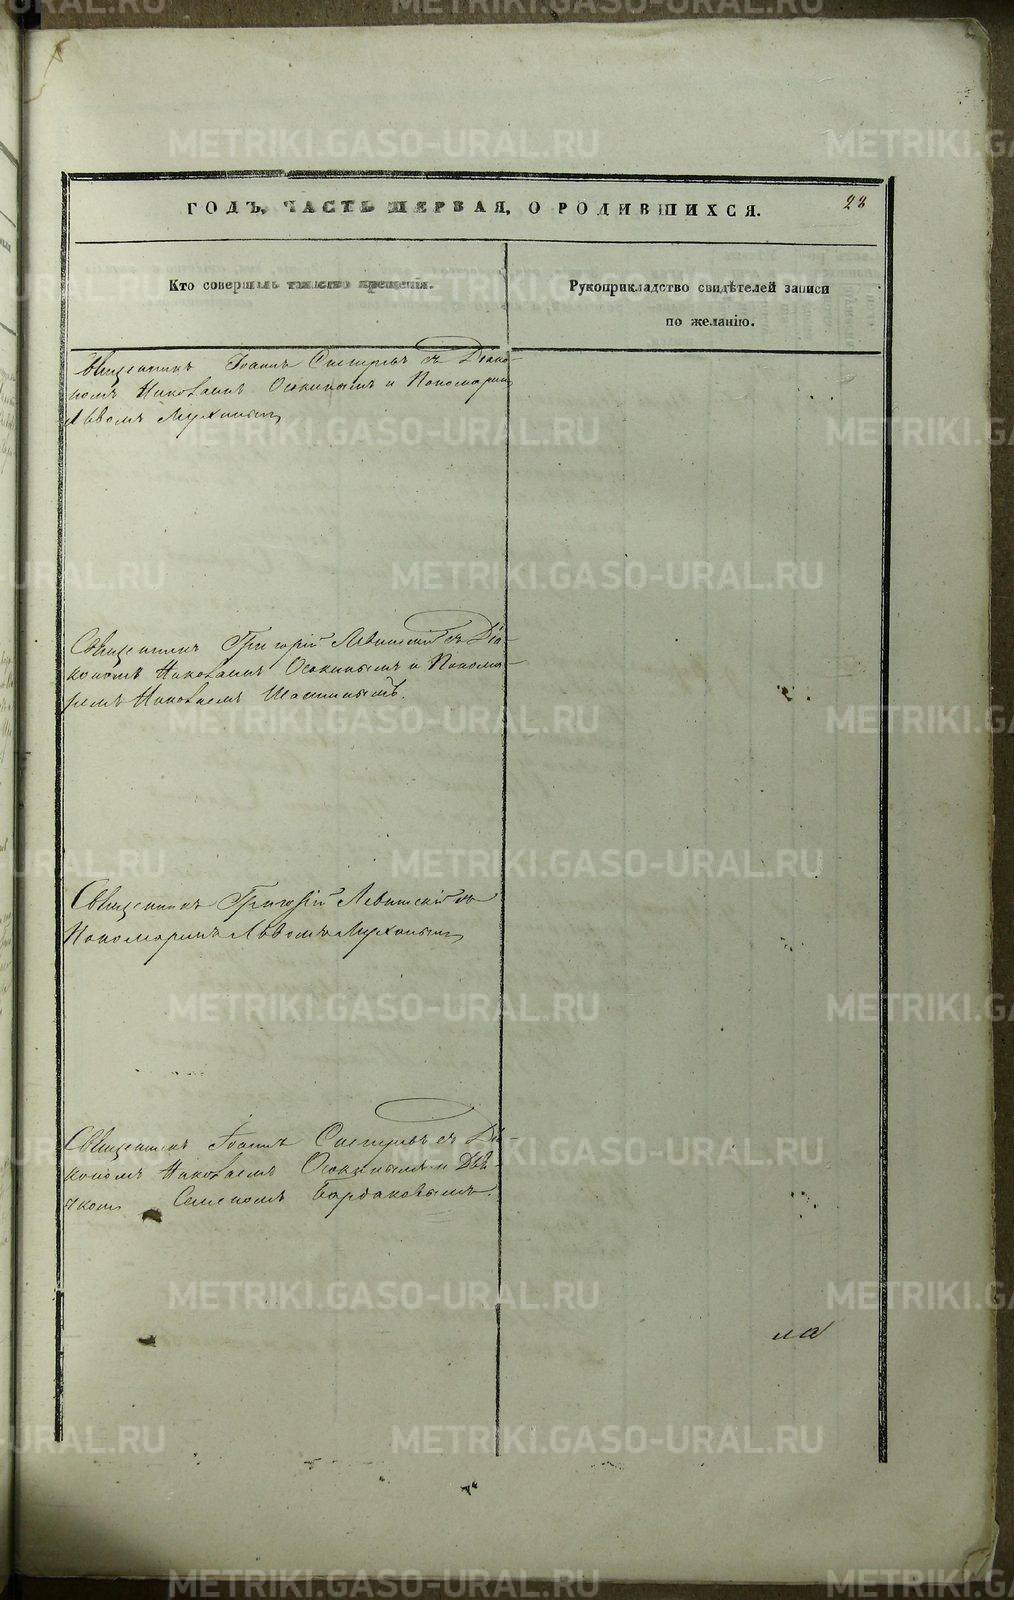 ГОДЪ, ЧАСТЬ ПЕРВАЯ, О РОДИВШИХСЯ.
28
Кто совершалъ таинство крещенія.
Рукоприкладство свидѣтелей записи
по желанію.
Священникъ Іоаннъ съ Діако-
номъ Николаемъ Осокинымъ и Пономаремъ
Львомъ Мухинымъ
Священникъ Григорій Левитскій съ Діа-
кономъ Николаемъ Осокинымъ и Понома-
ремъ Николаемъ
Священникъ Григорій Левитскій съ
Пономаремъ Львомъ Мухинымъ
Священникъ Іоаннъ съ Діа-
кономъ Николаемъ Осокинымъ и Дья-
чкомъ Семеномъ Бардаковымъ.
ла
METRIKI.GASO-URAL.RU